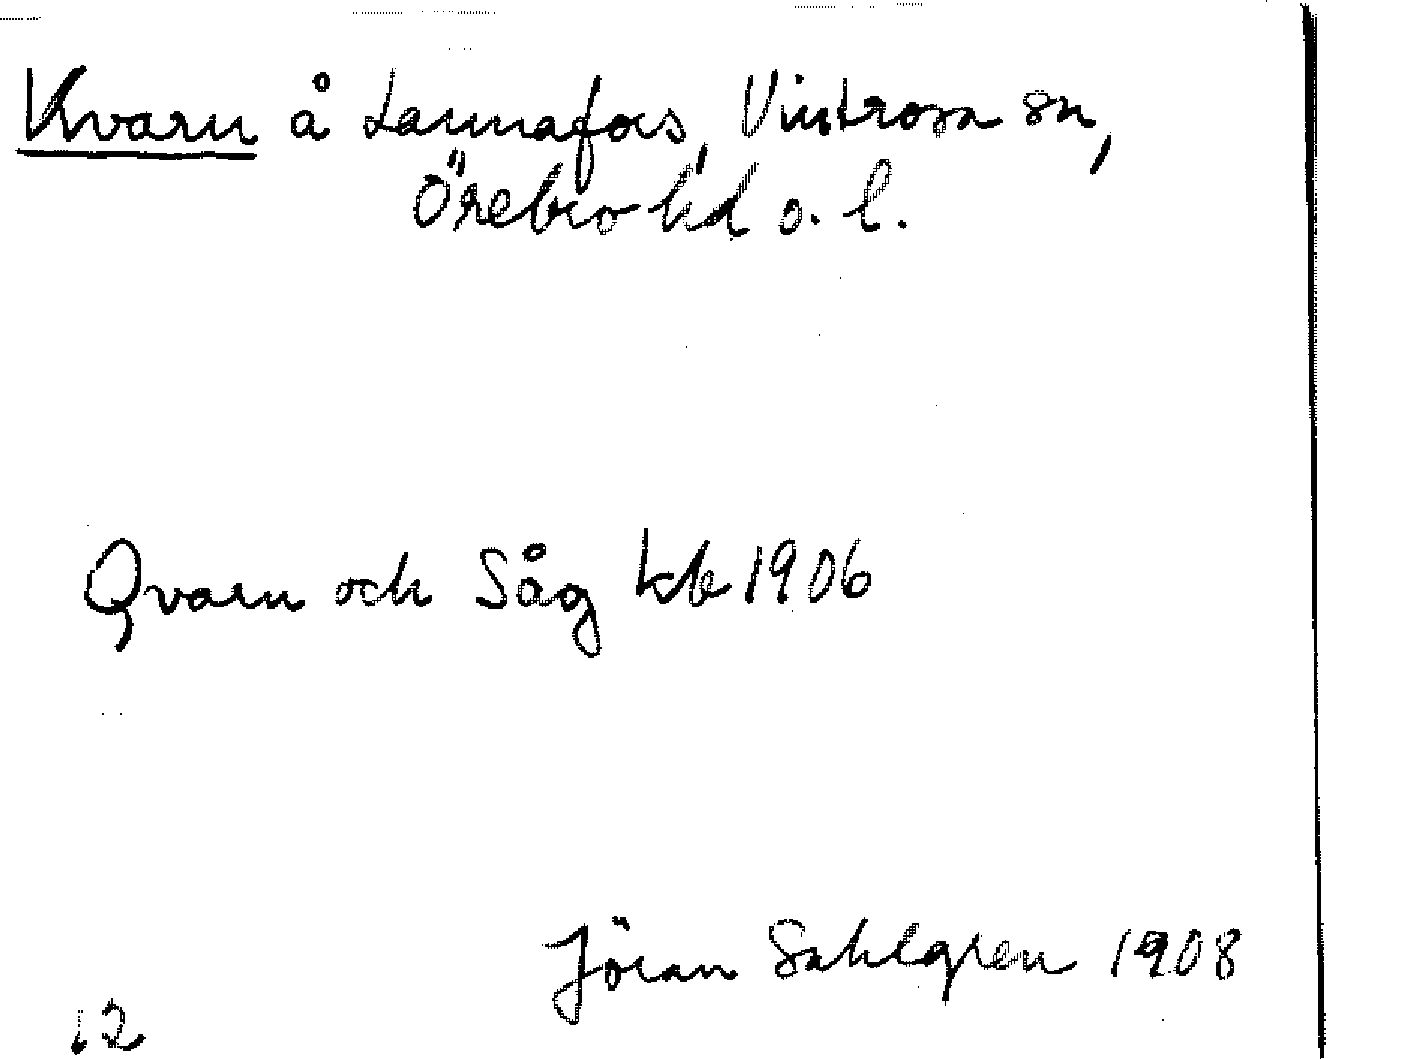 Kvarn å Lannafors, Vintrosa sn,
Örebro hd o. l.
Qvarn och Såg kb 1906
Jöran Sahlgren 1908
12